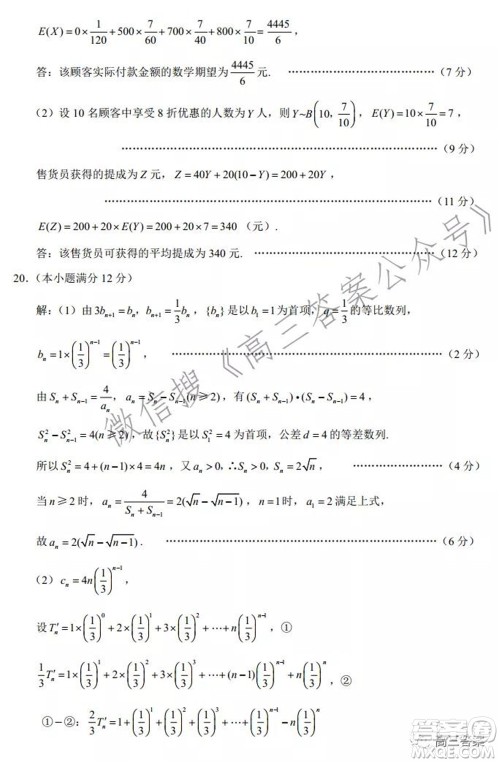 E(X)=0×1/120+500×7/60+700×7/40+800×7/10=4445/6，
答：该顾客实际付款金额的数学期望为4445/6元. ………………………（7 分）
（2）设 10 名顾客中享受 8 折优惠的人数为 Y 人，则 Y~B(10, 7/10)，E(Y)=10×7/10=7，
………………………（9 分）
售货员获得的提成为 Z 元，Z=40Y+20(10−Y)=20Y+200，
………………………（11 分）
E(Z)=200+20×E(Y)=200+20×7=340（元）.
答：该售货员可获得的平均提成为 340 元. ………………………（12 分）
20.（本小题满分 12 分）
解：（1）由 3bₙ₊₁=bₙ，bₙ₊₁=1/3 bₙ，{bₙ}是以 b₁=1 为首项，q=1/3 的等比数列，
bₙ=1×(1/3)ⁿ⁻¹=(1/3)ⁿ⁻¹， ………………………（2 分）
由 Sₙ+Sₙ₋₁=4/aₙ，aₙ=Sₙ−Sₙ₋₁(n≥2)，有(Sₙ+Sₙ₋₁)•(Sₙ−Sₙ₋₁)=4，
Sₙ²−Sₙ₋₁²=4(n≥2)，故{Sₙ²}是以 S₁²=4 为首项，公差 d=4 的等差数列.
所以 Sₙ²=4+(n−1)×4=4n，又 aₙ>0，∴Sₙ>0，Sₙ=2√n， ………………………（4 分）
当 n≥2 时，aₙ=4/(Sₙ+Sₙ₋₁)=2(√n−√(n−1))，n=1 时，a₁=2 满足上式，
故 aₙ=2(√n−√(n−1)). ………………………（6 分）
（2）cₙ=4n(1/3)ⁿ⁻¹，
设 Tₙ′=1×(1/3)⁰+2×(1/3)¹+3×(1/3)²+⋯+n(1/3)ⁿ⁻¹，①
1/3 Tₙ′=1×(1/3)¹+2×(1/3)²+3×(1/3)³+⋯+(n−1)(1/3)ⁿ⁻¹+n(1/3)ⁿ，②
①−②：2/3 Tₙ′=1+(1/3)¹+(1/3)²+⋯+(1/3)ⁿ⁻¹−n(1/3)ⁿ
微信搜《高三答案公众号》
高三答案